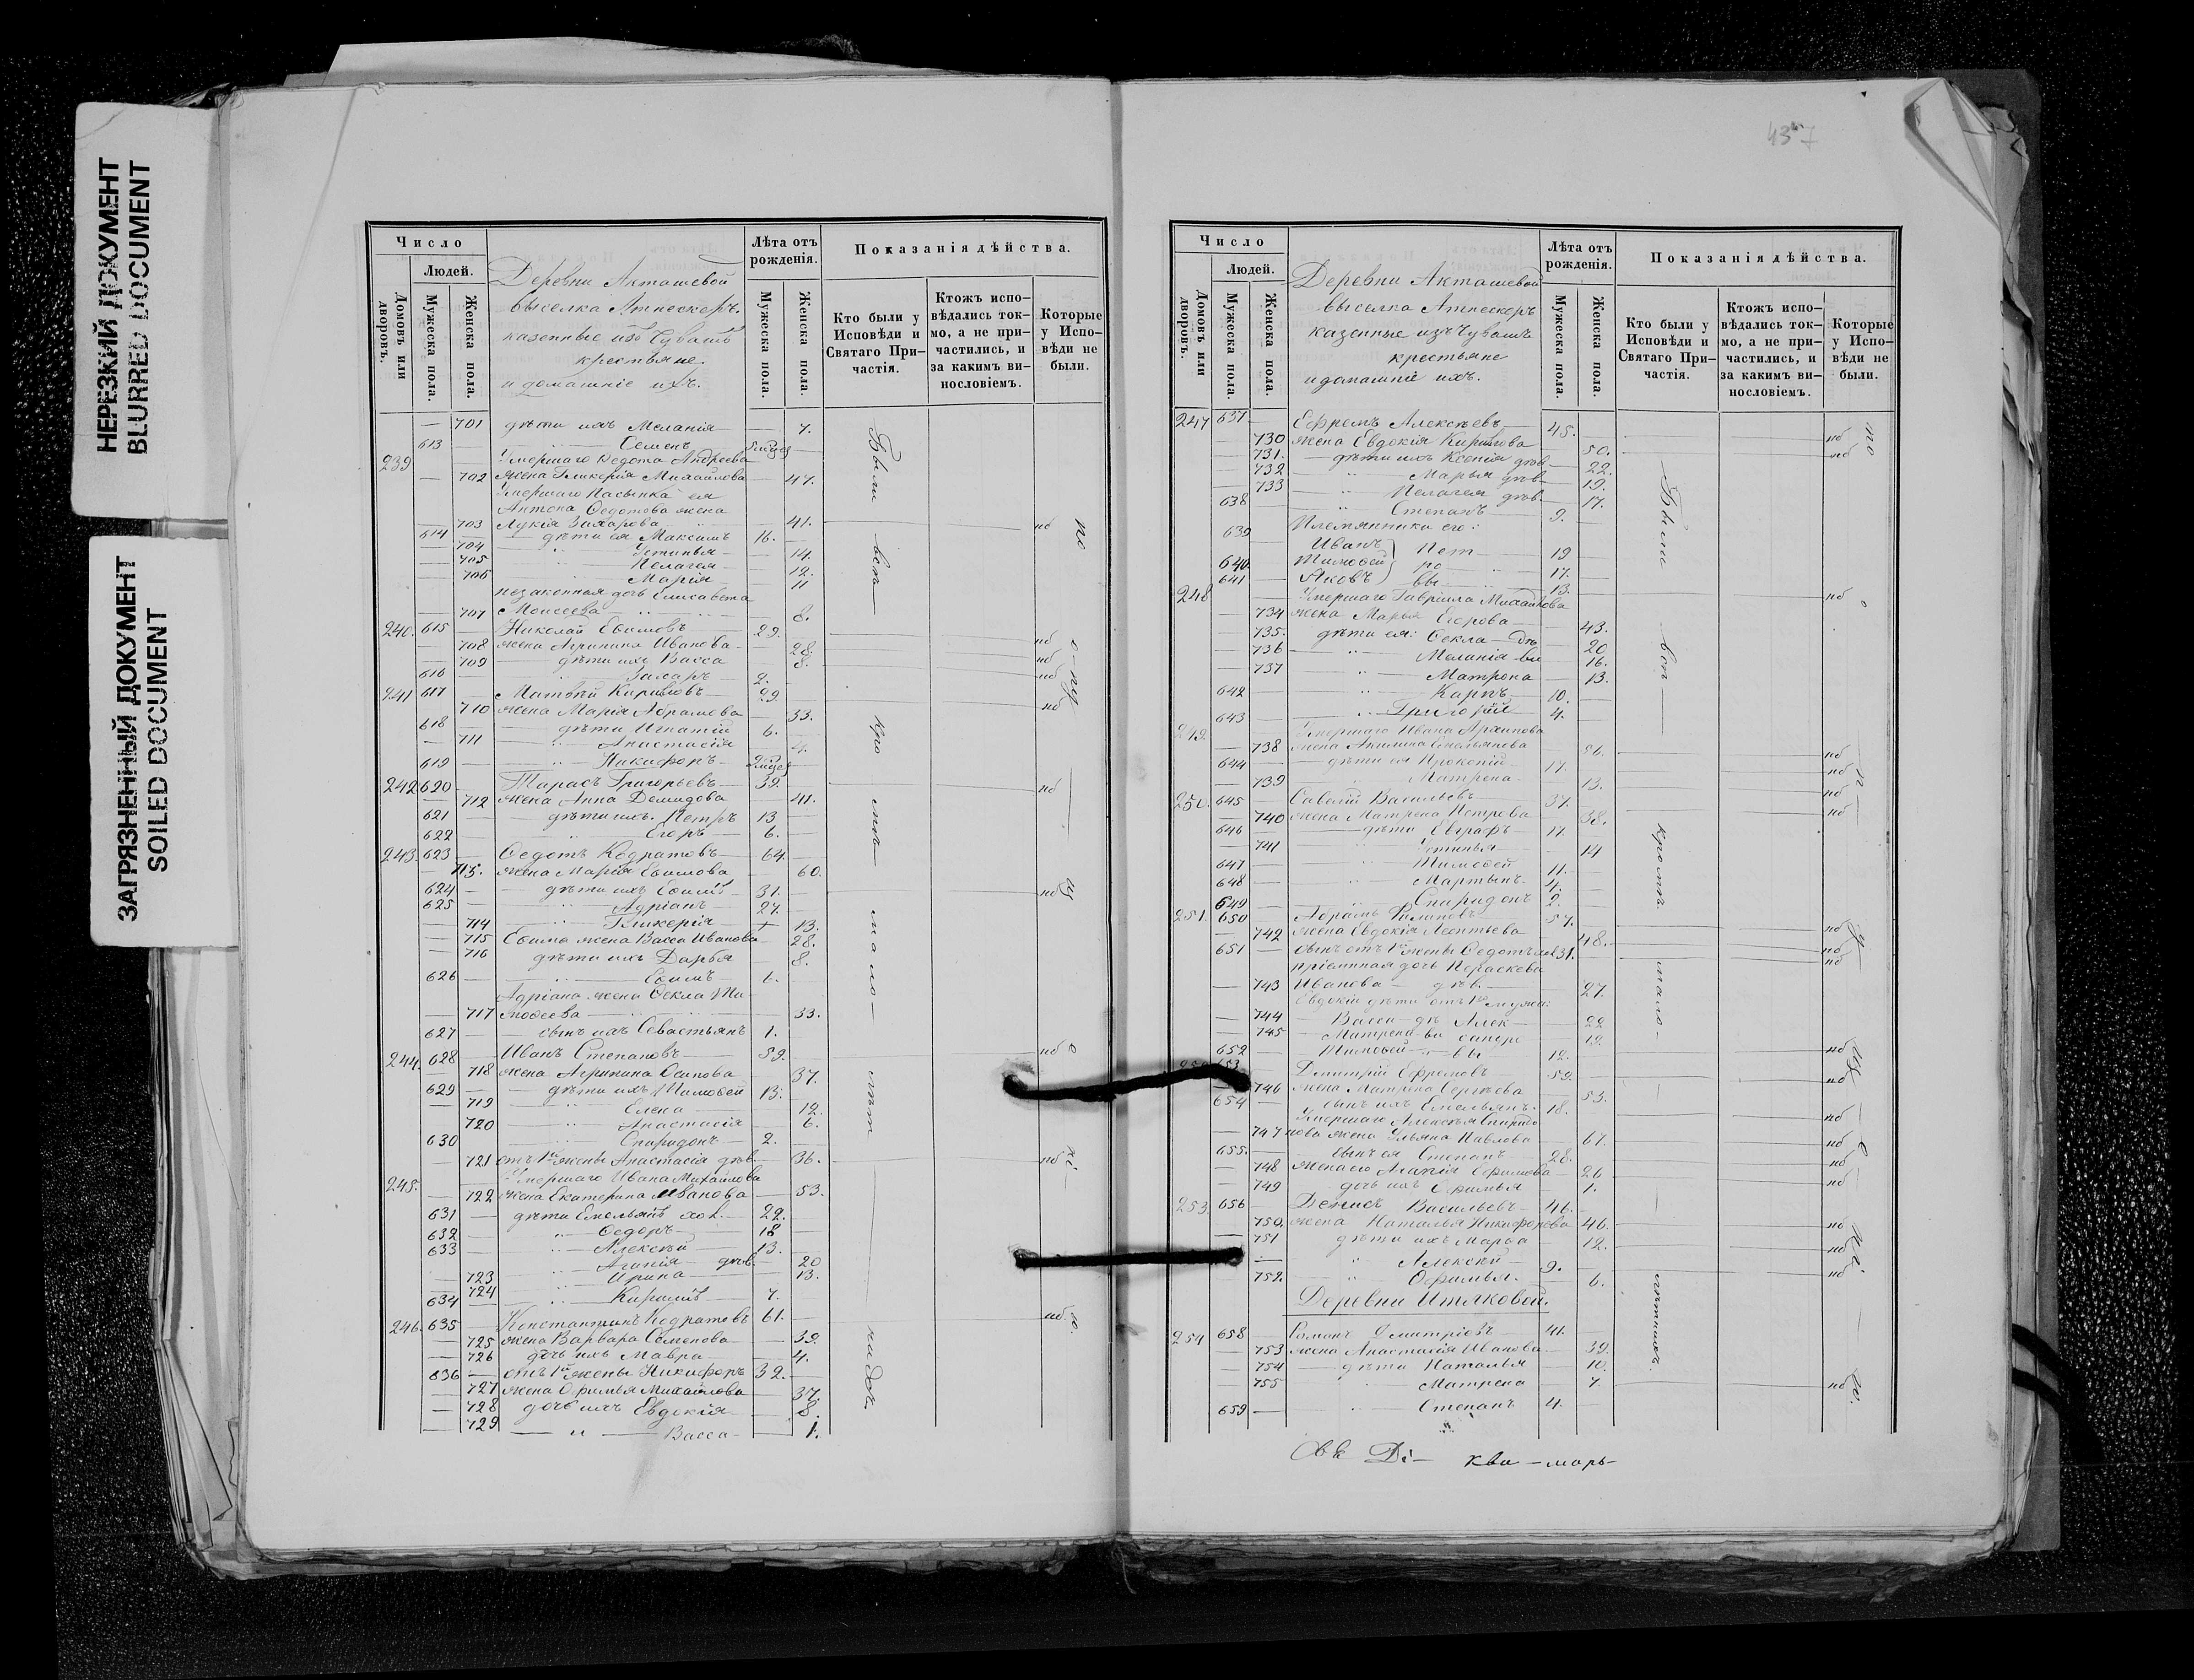 НЕРЕЗКИЙ ДОКУМЕНТ
BLURRED DOCUMENT
ЗАГРЯЗНЕННЫЙ ДОКУМЕНТ
SOILED DOCUMENT
Число
Людей.
Домовъ или дворовъ.
Мужеска пола.
Женска пола.
Деревни Акташевой
выселка Атнескеръ.
казенные изъ Чувашъ
крестьяне.
и домашніе ихъ.
Лѣта отъ рожденія.
Мужеска пола.
Женска пола.
Показанія дѣйства.
Кто были у Исповѣди и Святаго Причастія.
Ктожъ исповѣдались токмо, а не причастились, и за какимъ винословіемъ.
Которые у Исповѣди не были.
— 701 дѣти ихъ Меланія — 7.
613 — Семенъ
239 Умершаго Ѳедота Андреева
— 702 жена Гликерія Михайлова — 47.
Умершаго Пасынка ея
Антона Ѳедотова жена
— 703 Лукія Захарова — 41. нб
614 — дѣти ея Максимъ 16. —
— 704 Устинья — 14.
— 705 Пелагея — 12.
— 706 Марія — 11
незаконная дочь Елисавета
— 707 Моисеева — 8.
240. 615 — Николай Евѳимовъ 29. нб
— 708 жена Агрипина Иванова — 28. нб
— 709 дѣти ихъ Васса 8. нб
616 — Захаръ 2.
241 617 — Матвѣй Кириловъ 29. нб
— 710 жена Марія Абрамова — 33.
618 — дѣти Игнатій 6.
— 711 Анастасія — 4.
619 — Никифоръ
242 620 — Тарасъ Григорьевъ 39. нб
— 712 жена Анна Демидова — 41.
621 — дѣти ихъ. Петръ 13
622 — Егоръ 6.
243. 623 — Ѳедотъ Кодратовъ 64. —
— 713. жена Марія Евѳимова — 60.
624 — дѣти ихъ Евѳимъ 31. нб
625 — Адріанъ 27.
— 714 Гликерія 13.
— 715 Евѳима жена Васса Иванова — 28.
— 716 дѣти ихъ Дарья — 8.
626 — Евѳимъ 1.
Адріана жена Ѳекла Ти-
— 717 моѳеева — 33.
627 — сынъ ихъ Севастьянъ 1.
244. 628 — Иванъ Степановъ 59. нб
— 718 жена Агрипина Осипова — 37.
629 — дѣти ихъ Тимоѳей 13.
— 719 Елена — 12.
— 720 Анастасія — 6.
630 — Спиридонъ 2.
— 721 отъ 1й жены Анастасія дѣв. 36. нб
245. Умершаго Ивана Михайлова
— 722 жена Екатерина Иванова — 53.
631 — дѣти Емельянъ хол. 22.
632 — Ѳедоръ 18
633 — Алексѣй 13.
— 723 Агапія дѣв. 20
— 724 Ирина — 13.
634 — Кирилъ 7.
246. 635 — Константинъ Кодратовъ 61. нб.
— 725 жена Варвара Семенова — 39.
— 726 дочь ихъ Мавра — 4.
636 — отъ 1й жены Никифоръ 32.
— 727 жена Офимья Михайлова — 37.
— 728 дочь ихъ Евдокія — 8.
— 729 Васса — 1.
Были всѣ кромѣ малолѣтнихъ
Число
Людей.
Домовъ или дворовъ.
Мужеска пола.
Женска пола.
Деревни Акташевой
выселка Атнескеръ
казенные изъ Чувашъ
крестьяне
и домашніе ихъ.
Лѣта отъ рожденія.
Мужеска пола.
Женска пола.
Показанія дѣйства.
Кто были у Исповѣди и Святаго Причастія.
Ктожъ исповѣдались токмо, а не причастились, и за какимъ винословіемъ.
Которые у Исповѣди не были.
247 637 — Ефремъ Алексѣевъ 45. нб
— 730 жена Евдокія Кирилова — 50. нб
— 731. дѣти ихъ Ксенія дѣв. 22.
— 732 Марья дѣв. 19.
— 733 Пелагея дѣв. 17.
638 — Степанъ 9.
Племянники его:
639 — Иванъ 19
640. — Тимоѳей 17.
641 — Яковъ 13.
Петровы
248 Умершаго Гавріила Михайлова нб
— 734 жена Марья Егорова — 43.
— 735. дѣти ея: Ѳекла 20
— 736 Меланія 16.
— 737 Матрона 13.
642 — Карпъ 10.
643 — Григорій 4.
249. Умершаго Ивана Архипова
— 738 жена Акилина Емельянова — 51. нб
644 — дѣти ея Прокопій 17. нб
— 739 Матрена 13. нб
250. 645 — Савелій Васильевъ 37. нб
— 740 жена Матрена Петрова — 38.
646 — дѣти Евграфъ 17.
— 741 Устинья — 14
647 — Тимоѳей 11.
648 — Мартынъ 4.
649 — Спиридонъ 2.
251. 650 — Абрамъ Филиповъ 57. нб
— 742 жена Евдокія Леонтьева — 48. нб
651 — сынъ отъ 1й жены Ѳедотъ хол 31. нб
пріемная дочь Параскева
— 743 Иванова дѣв. 27.
Евдокіи дѣти отъ 1го мужа:
— 744 Васса 22
— 745 Матрена 19.
652 — Тимоѳей 12. нб
653 Дмитрій Ефремовъ 59. нб
— 746 жена Матрена Сергѣева — 53.
654 — сынъ ихъ Емельянъ 18. нб
Умершаго Алексѣя Спиридо-
— 747 нова жена Ульяна Павлова — 67. нб
655. — сынъ ея Степанъ 28. нб
— 748 жена его Агапія Ефимова — 26 нб
— 749 дочь ихъ Офимья — 1.
253 656 — Денисъ Васильевъ 46. нб
— 750. жена Наталья Никифорова 46. нб
— 751 дѣти ихъ Марѳа — 12. нб
Алексѣй 9.
— 752 Офимья. 6.
Деревни Итяковой.
254 658 — Романъ Дмитріевъ 41.
— 753 жена Анастасія Иванова — 39.
— 754 дѣти Наталья — 10.
— 755 Матрена — 7. нб
659 — Степанъ 4.
Были всѣ кромѣ мало-